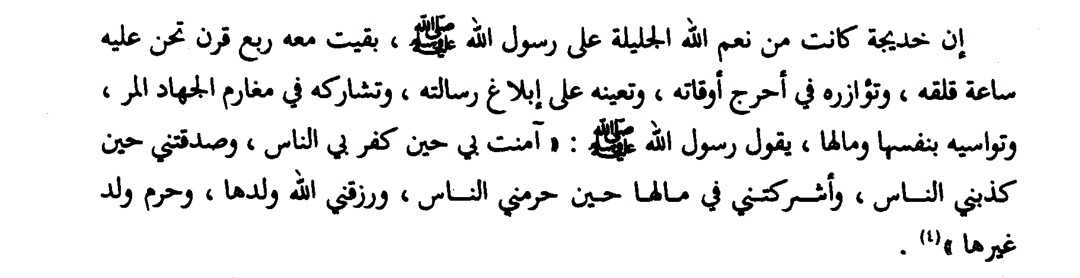 إن خديجة كانت من نعم الله الجليلة على رسول الله ﷺ ، بقيت معه ربع قرن تحن عليه
ساعة قلقه ، وتؤازره في أحرج أوقاته ، وتعينه على إبلاغ رسالته ، وتشاركه في مغارم الجهاد المر ،
وتواسيه بنفسها ومالها ، يقول رسول الله ﷺ : « آمنت بي حين كفر بي الناس ، وصدقتني حين
كذبني النـاس ، وأشـركتـني في مـالهـا حـين حرمني النـاس ، ورزقني الله ولدها ، وحرم ولد
غيرها »(٤) .